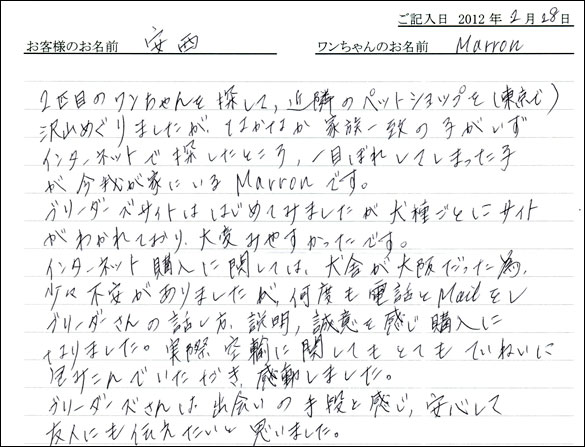 ご記入日 2012年2月28日
お客様のお名前 安西 ワンちゃんのお名前 Marron
2匹目のワンちゃんを探して、近隣のペットショップを(東京で)
沢山めぐりましたが、なかなか家族一致の子がいず
インターネットで探したところ、一目ぼれしてしまった子
が今我が家にいるMarronです。
ブリーダーズサイトははじめてみましたが犬種ごとにサイト
がわかれており、大変みやすかったです。
インターネット購入に関しては、犬舎が大阪だった為、
少々不安がありましたが、何度も電話とMailをし
ブリーダーさんの話し方、説明、誠意を感じ購入に
なりました。実際空輸に関してもとてもていねいに
包みこんでいただき、感動しました。
ブリーダーズさんは出会いの手段と感じ、安心して
友人にも伝えたいと思いました。